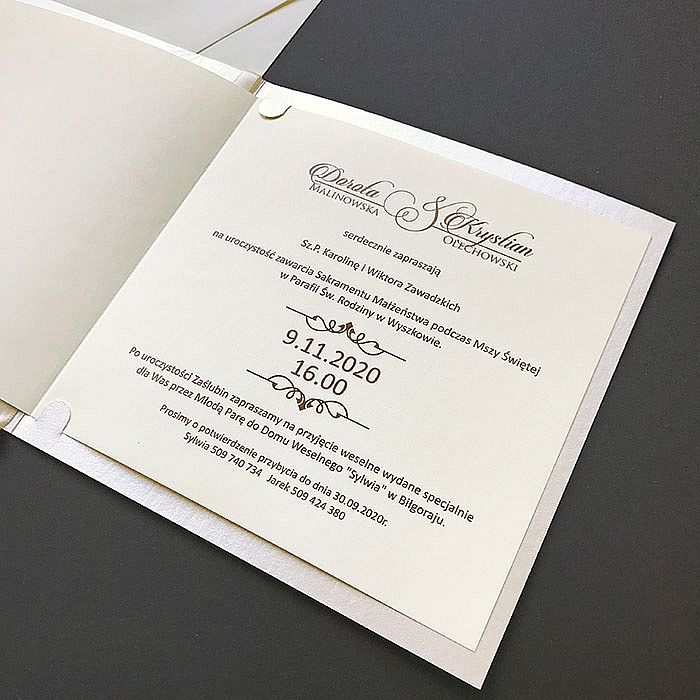 Dorota & Krystian
MALINOWSKA OLECHOWSKI
serdecznie zapraszają
Sz.P. Karolinę i Wiktora Zawadzkich
na uroczystość zawarcia Sakramentu Małżeństwa podczas Mszy Świętej
w Parafii Św. Rodziny w Wyszkowie.
9.11.2020
16.00
Po uroczystości Zaślubin zapraszamy na przyjęcie weselne wydane specjalnie
dla Was przez Młodą Parę do Domu Weselnego "Sylwia" w Biłgoraju.
Prosimy o potwierdzenie przybycia do dnia 30.09.2020r.
Sylwia 509 740 734 Jarek 509 424 380